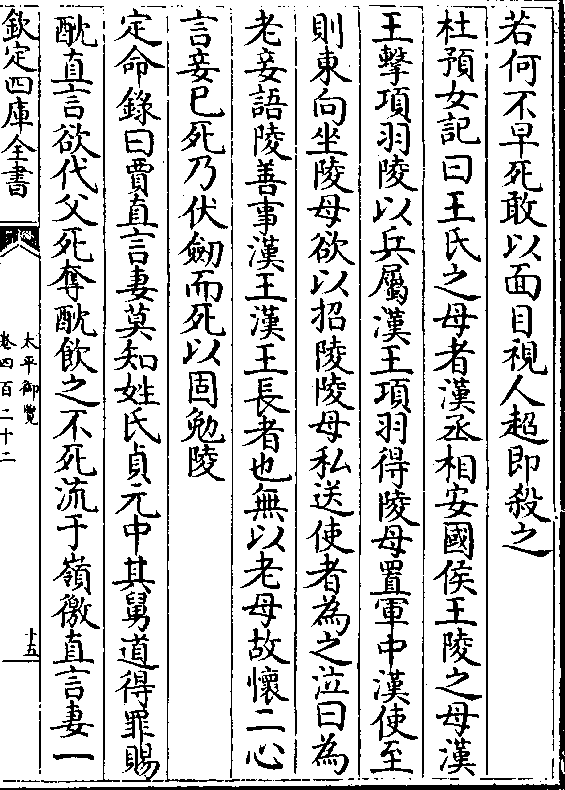 若何不早死敢以面目視人超即殺之
杜預女記曰王氏之母者漢丞相安國侯王陵之母漢
王擊項羽陵以兵屬漢王項羽得陵母置軍中漢使至
則東向坐陵母欲以招陵陵母私送使者為之泣曰為
老妾語陵善事漢王漢王長者也無以老母故懷二心
言妾已死乃伏劒而死以固勉陵
定命錄曰賈直言妻莫知姓氏貞元中其舅道得罪賜
酖直言欲代父死奪酖飲之不死流于嶺徼直言妻一
欽定四庫全書
太平御覽
卷四百二十二
十五